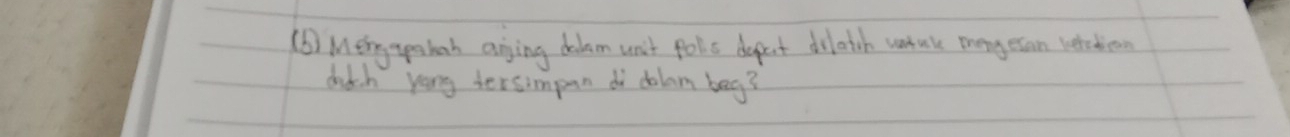 (b) Mengapakah anjing dalam unit polis dapat dilatih untuk mengesan kehadiran
dadah yang tersimpan di dalam beg?